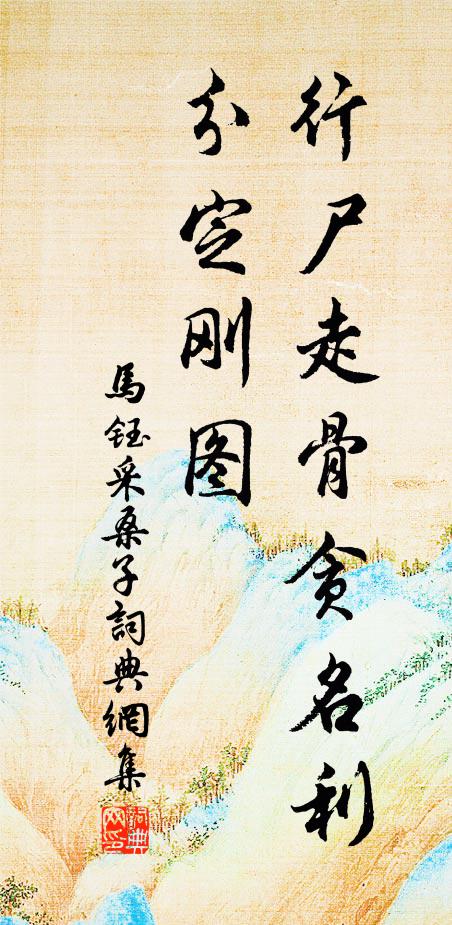 行尸走骨贪名利
分定刚图
馬鈺采桑子詞典網集
詞典
网印